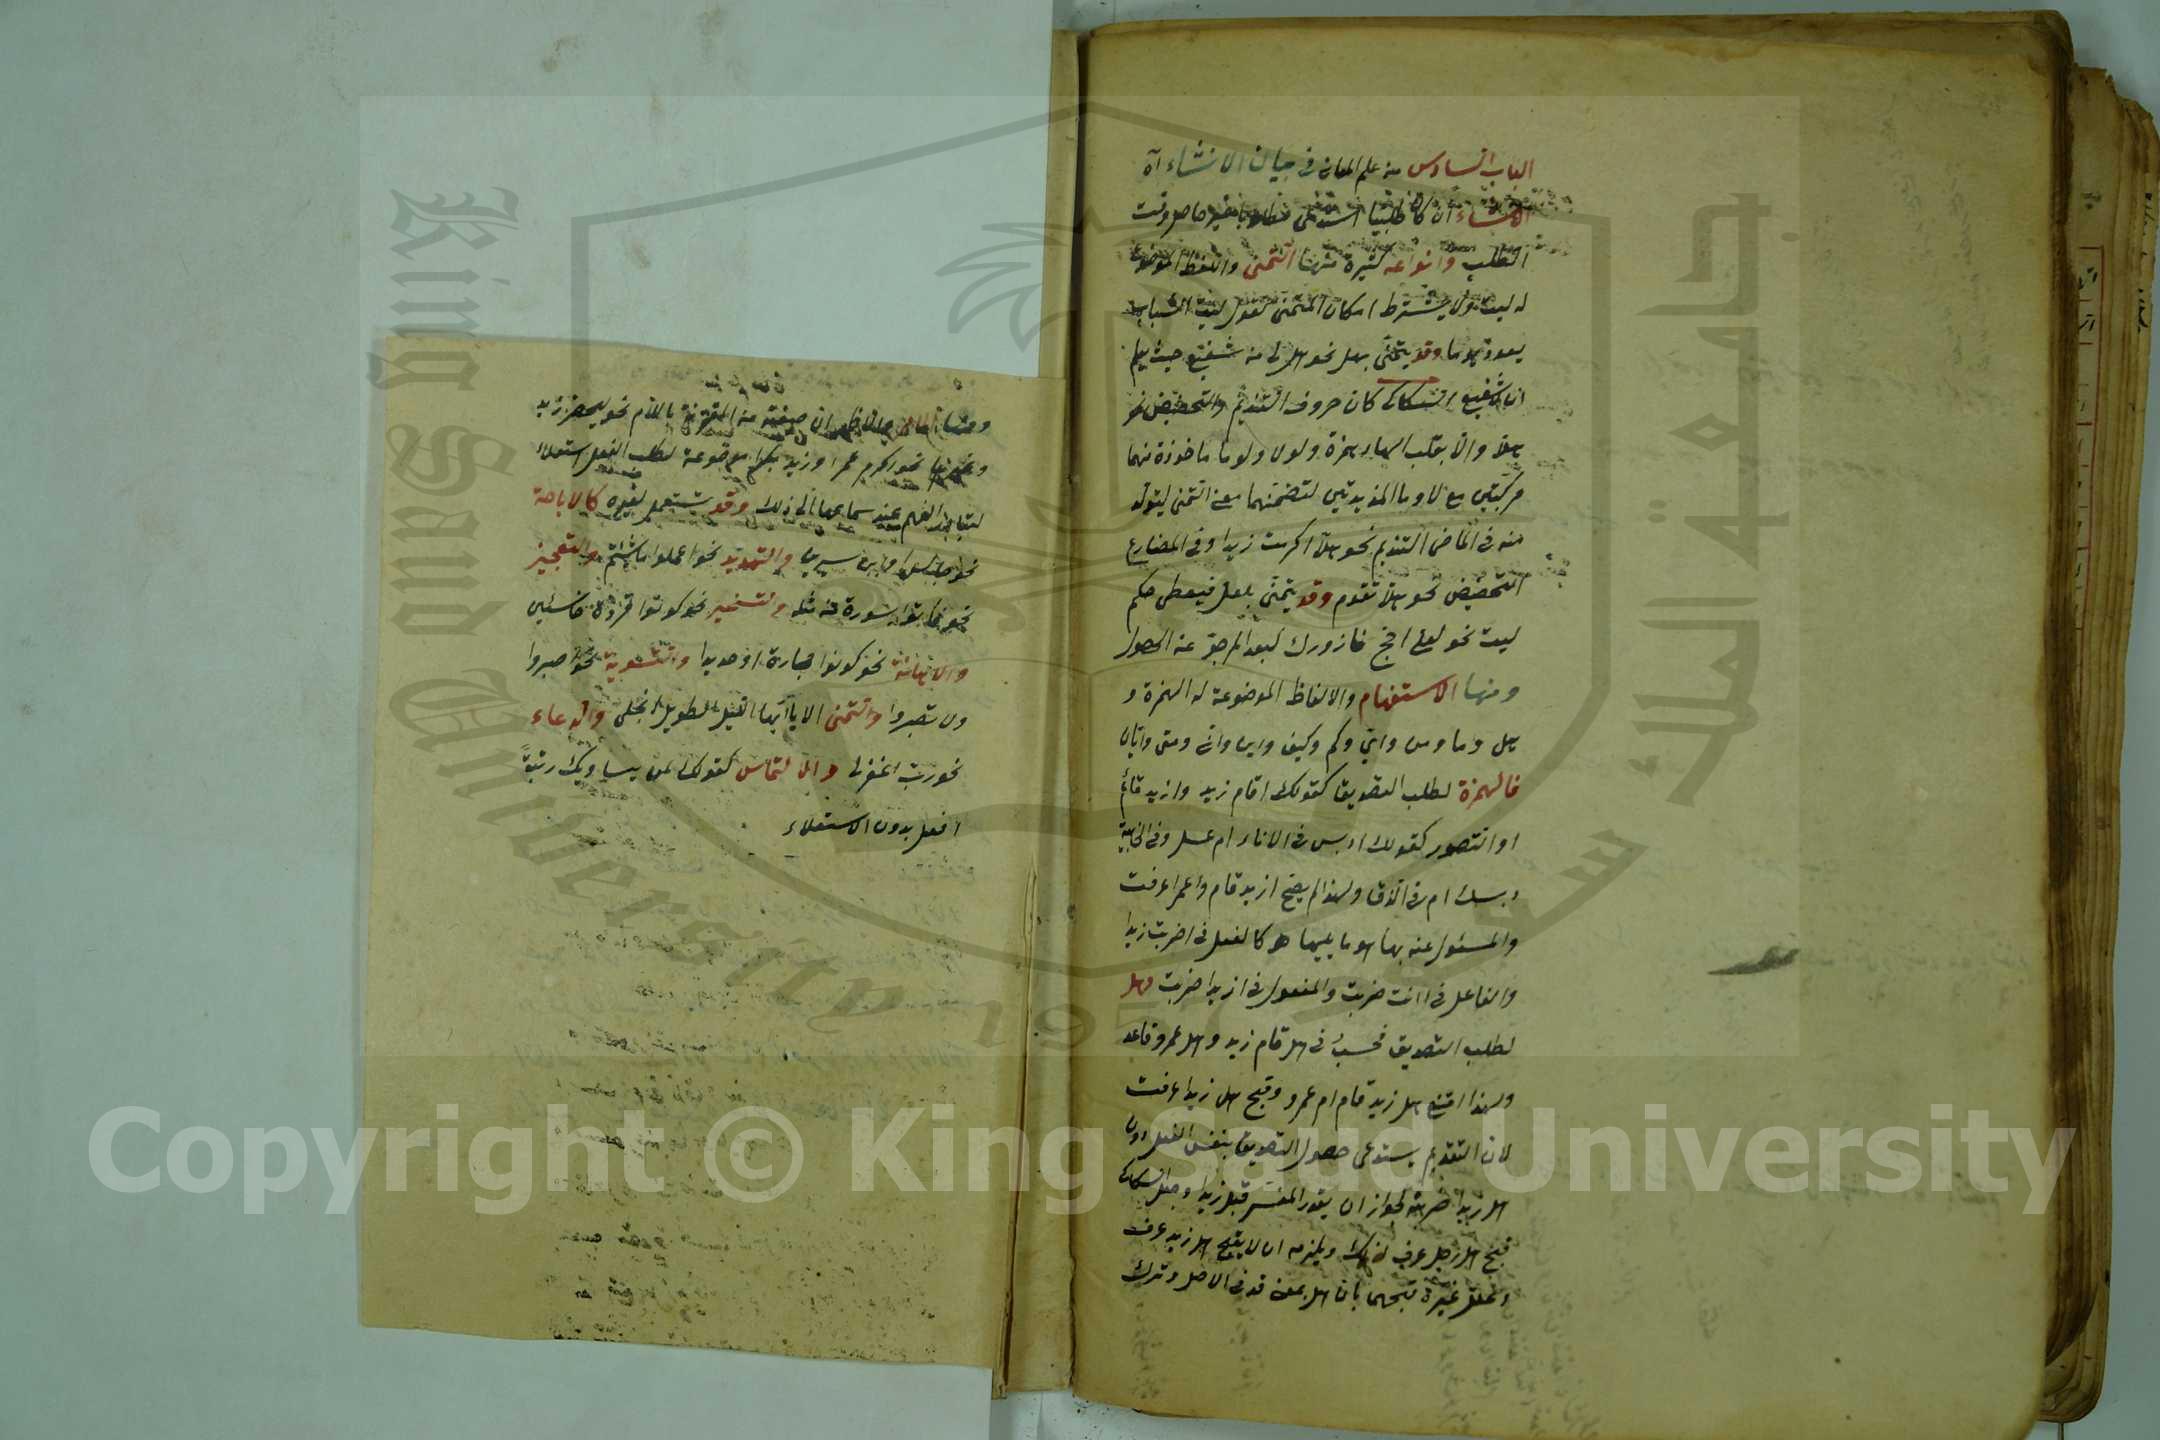 الباب السادس من علم المعاني في بيان الانشاء اه
الانشاء ان كان طلبيا استدعى مطلوبا غير حاصل وقت
الطلب وانواعه كثيرة منها التمنى واللفظ الموضوع
له ليت ولا يشترط امكان المتمنى تقول ليت الشباب
يعود يوما وقد يتمنى بهل نحو هل لى من شفيع حيث يعلم
ان لا شفيع السكاكى كان حروف التنديم والتحضيض نحو
هلا والا بقلب الهاء همزة ولولا ولوما ماخوذة منهما
مركبتين مع لا وما المزيدتين لتضمنهما معنى التمنى ليتولد
منه فى الماضى التنديم نحو هلا اكرمت زيدا وفى المضارع
التحضيض نحو هلا تقوم وقد يتمنى بلعل فيعطى حكم
ليت نحو لعلى احج فازورك لبعد المرجو عن الحصول
ومنها الاستفهام والالفاظ الموضوعة له الهمزة و
هل وما ومن واى وكم وكيف واين وانى ومتى وايان
فالهمزة لطلب التصديق كقولك اقام زيد وازيد قائم
او التصور كقولك ادبس فى الاناء ام عسل وفى الخابية
دبسك ام فى الزق ولهذا لم يقبح ازيد قام واعمرا عرفت
والمسئول عنه بها هو ما يليها كالفعل فى اضربت زيدا
والفاعل فى اانت ضربت والمفعول فى ازيدا ضربت وهل
لطلب التصديق فحسب فى هل قام زيد وهل عمرو قاعد
ولهذا امتنع هل زيد قام ام عمرو وقبح هل زيدا عرفت
لان التقديم يستدعى حصول التصديق بنفس الفعل دون
هل زيدا ضربته لجواز ان يقدر المفسر قبل زيدا وجعل السكاكى
قبح هل رجل عرف لذلك ويلزمه ان لا يقبح هل زيد عرف
وعلل غيره قبحهما بان هل بمعنى قد فى الاصل وترك
ومنها الامر والاظهر ان صيغته من المقترنة باللام نحو ليحضر زيد
وغيرها نحو اكرم عمرا ورويد بكرا موضوعة لطلب الفعل استعلاء
لتبادر الفهم عند سماعها الى ذلك وقد تستعمل لغيره كالاباحة
نحو جالس الحسن او ابن سيرين والتهديد نحو اعملوا ما شئتم والتعجيز
نحو فأتوا بسورة من مثله والتسخير نحو كونوا قردة خاسئين
والاهانة نحو كونوا حجارة او حديدا والتسوية نحو اصبروا
ولا تصبروا والتمنى الا يا ايها الليل الطويل الا انجلى والدعاء
نحو رب اغفر لى والالتماس كقولك لمن يساويك رتبة
افعل بدون الاستعلاء
Copyright © King Saud University
King Saud University 1957
جامعة الملك سعود